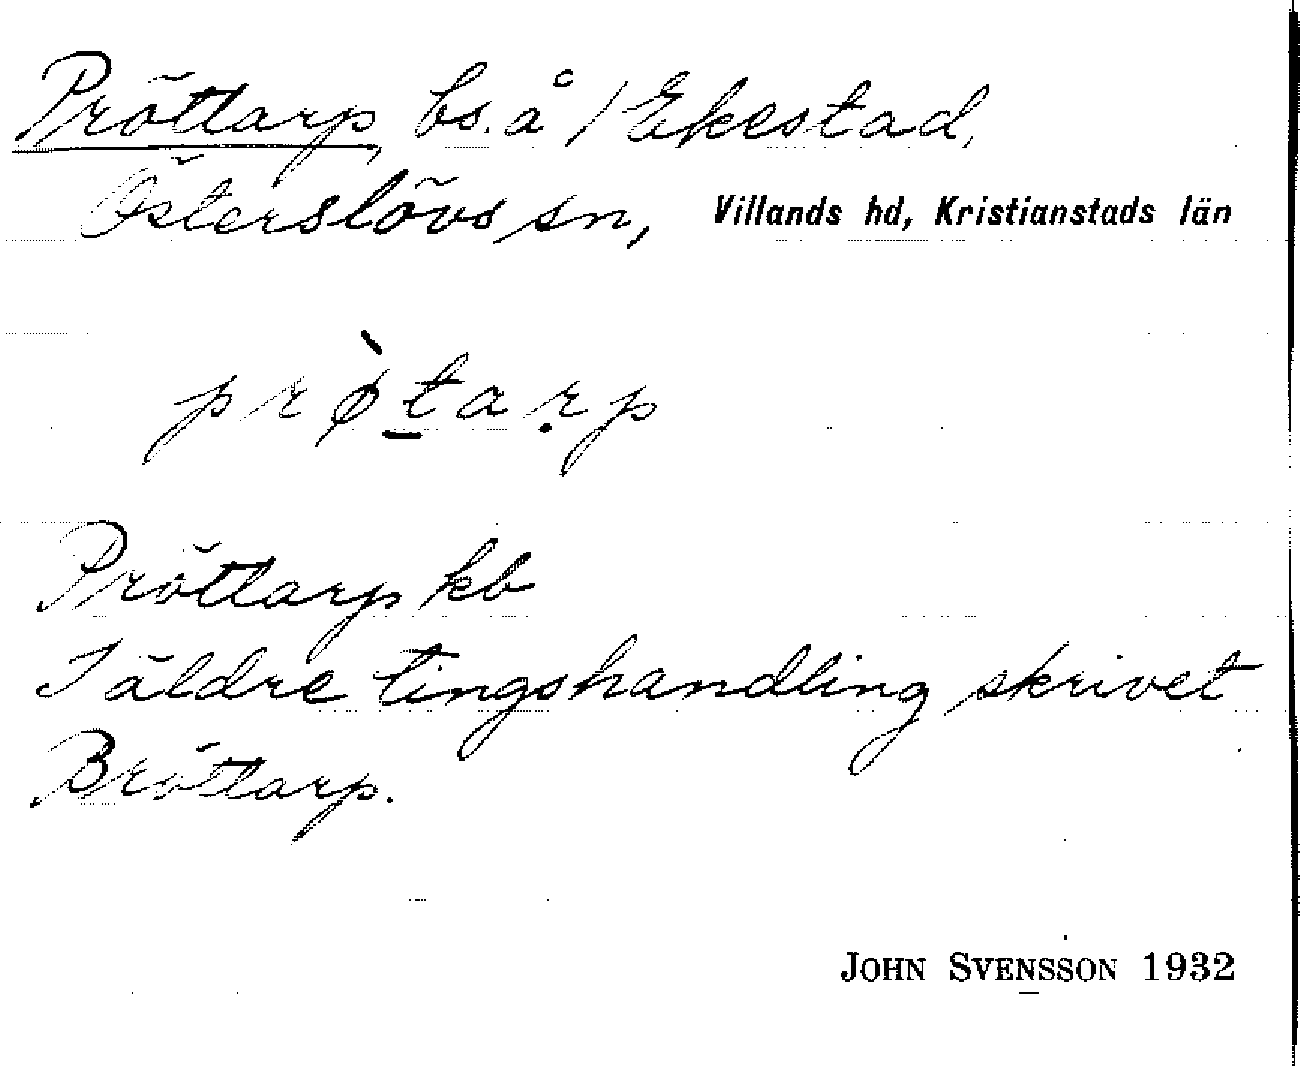 Pröttarp, bs. å 1 Ekestad,
Österslövs sn, Villands hd, Kristianstads län
prø̀t̠arp̣
Pröttarp kb
I äldre tingshandling skrivet
Bröttarp.
JOHN SVENSSON 1932